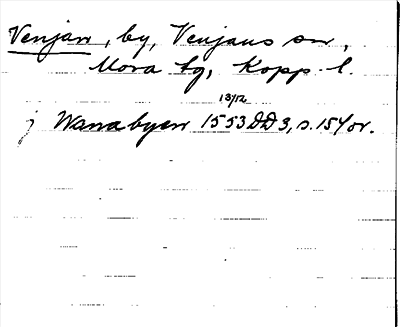 Venjan, by, Venjans sn,
Mora tg, Kopp. l.
13/12
j Wanabyen 1553 DD 3, s. 154 or.